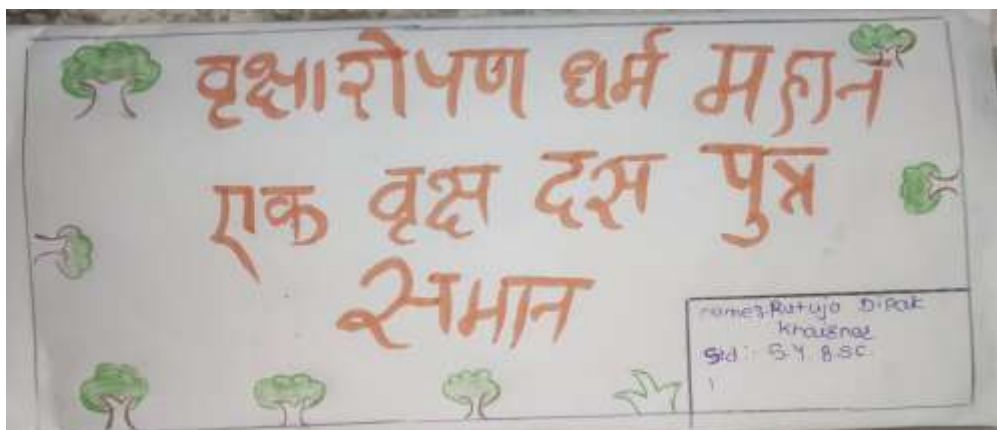 वृक्षारोपण धर्म महान
एक वृक्ष दस पुत्र
समान
name:- Rutuja Dipak
Khairnar
Std :- S.Y. B.SC.